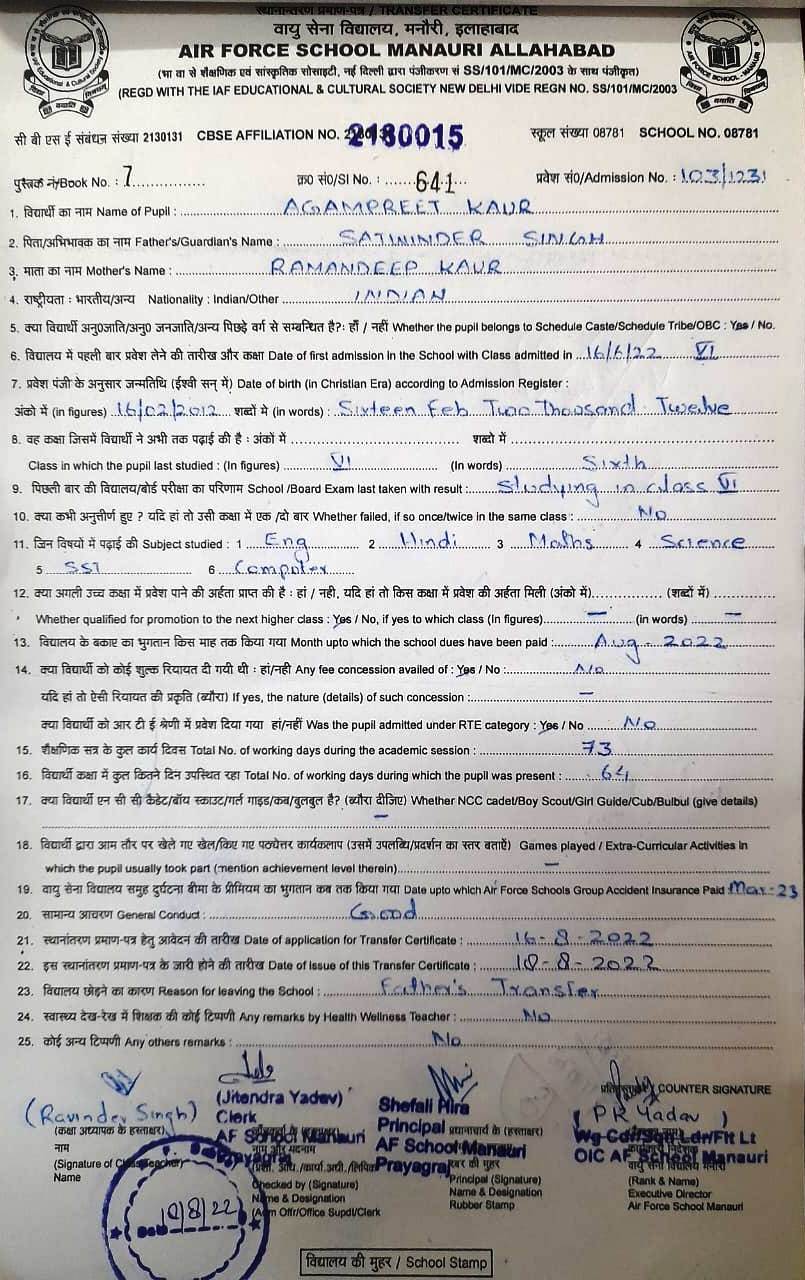 स्थानान्तरण प्रमाण-पत्र / TRANSFER CERTIFICATE
वायु सेना विद्यालय, मनौरी, इलाहाबाद
AIR FORCE SCHOOL MANAURI ALLAHABAD
(भा वा से शैक्षणिक एवं सांस्कृतिक सोसाइटी, नई दिल्ली द्वारा पंजीकरण सं SS/101/MC/2003 के साथ पंजीकृत)
(REGD WITH THE IAF EDUCATIONAL & CULTURAL SOCIETY NEW DELHI VIDE REGN NO. SS/101/MC/2003
सी बी एस ई संबंधन संख्या 2130131 CBSE AFFILIATION NO. 2180015 स्कूल संख्या 08781 SCHOOL NO. 08781
पुस्तक नं/Book No. : 7 क्र0 सं0/Sl No. : 641 प्रवेश सं0/Admission No. : 103/1231
1. विद्यार्थी का नाम Name of Pupil : AGAMPREET KAUR
2. पिता/अभिभावक का नाम Father's/Guardian's Name : SATWINDER SINGH
3. माता का नाम Mother's Name : RAMANDEEP KAUR
4. राष्ट्रीयता : भारतीय/अन्य Nationality : Indian/Other INDIAN
5. क्या विद्यार्थी अनु0जाति/अनु0 जनजाति/अन्य पिछड़े वर्ग से सम्बन्धित है?: हाँ / नहीं Whether the pupil belongs to Schedule Caste/Schedule Tribe/OBC : Yes / No.
6. विद्यालय में पहली बार प्रवेश लेने की तारीख और कक्षा Date of first admission in the School with Class admitted in 16/6/22 VI
7. प्रवेश पंजी के अनुसार जन्मतिथि (ईश्वी सन् में) Date of birth (in Christian Era) according to Admission Register :
अंको में (in figures) 16/02/2012 शब्दों मे (in words) : Sixteen Feb Two Thousand Twelve
8. वह कक्षा जिसमें विद्यार्थी ने अभी तक पढ़ाई की है : अंकों में शब्दो में
Class in which the pupil last studied : (In figures) VI (In words) Sixth
9. पिछली बार की विद्यालय/बोर्ड परीक्षा का परिणाम School /Board Exam last taken with result : Studying in class VI
10. क्या कभी अनुत्तीर्ण हुए ? यदि हां तो उसी कक्षा में एक /दो बार Whether failed, if so once/twice in the same class : No
11. जिन विषयों में पढ़ाई की Subject studied : 1 Eng 2 Hindi 3 Maths 4 Science
5 SST 6 Computer
12. क्या अगली उच्च कक्षा में प्रवेश पाने की अर्हता प्राप्त की है : हां / नही, यदि हां तो किस कक्षा में प्रवेश की अर्हता मिली (अंको में) (शब्दों में)
Whether qualified for promotion to the next higher class : Yes / No, if yes to which class (In figures) — (in words) —
13. विद्यालय के बकाए का भुगतान किस माह तक किया गया Month upto which the school dues have been paid : Aug - 2022
14. क्या विद्यार्थी को कोई शुल्क रियायत दी गयी थी : हां/नही Any fee concession availed of : Yes / No : No
यदि हां तो ऐसी रियायत की प्रकृति (ब्यौरा) If yes, the nature (details) of such concession : —
क्या विद्यार्थी को आर टी ई श्रेणी में प्रवेश दिया गया हां/नहीं Was the pupil admitted under RTE category : Yes / No No
15. शैक्षणिक सत्र के कुल कार्य दिवस Total No. of working days during the academic session : 73
16. विद्यार्थी कक्षा में कुल कितने दिन उपस्थित रहा Total No. of working days during which the pupil was present : 64
17. क्या विद्यार्थी एन सी सी कैडेट/बॉय स्काउट/गर्ल गाइड/कब/बुलबुल है? (ब्यौरा दीजिए) Whether NCC cadet/Boy Scout/Girl Guide/Cub/Bulbul (give details)
—
18. विद्यार्थी द्वारा आम तौर पर खेले गए खेल/किए गए पठ्येत्तर कार्यकलाप (उसमें उपलब्धि/प्रदर्शन का स्तर बताऐं) Games played / Extra-Curricular Activities in
which the pupil usually took part (mention achievement level therein) —
19. वायु सेना विद्यालय समुह दुर्घटना बीमा के प्रीमियम का भुगतान कब तक किया गया Date upto which Air Force Schools Group Accident Insurance Paid Mar-23
20. सामान्य आचरण General Conduct : Good
21. स्थानांतरण प्रमाण-पत्र हेतु आवेदन की तारीख Date of application for Transfer Certificate : 16-8-2022
22. इस स्थानांतरण प्रमाण-पत्र के जारी होने की तारीख Date of issue of this Transfer Certificate : 18-8-2022
23. विद्यालय छोड़ने का कारण Reason for leaving the School : Father's Transfer
24. स्वास्थ्य देख-रेख में शिक्षक की कोई टिप्पणी Any remarks by Health Wellness Teacher : No
25. कोई अन्य टिप्पणी Any others remarks : No
COUNTER SIGNATURE
(Ravinder Singh) (Jitendra Yadav) Shefali Hira (PK Yadav)
(कक्षा अध्यापक के हस्ताक्षर) Clerk Principal प्रधानाचार्य के (हस्ताक्षर) Wg Cdr/Sqn Ldr/Flt Lt
नाम AF School Manauri AF School Manauri OIC AF School Manauri
(Signature of Class Teacher) Prayagraj Prayagraj रबर की मुहर वायु सेना विद्यालय मनौरी
Name Checked by (Signature) Principal (Signature) (Rank & Name)
Name & Designation Name & Designation Executive Director
(Adm Offr/Office Supdt/Clerk Rubber Stamp Air Force School Manauri
विद्यालय की मुहर / School Stamp